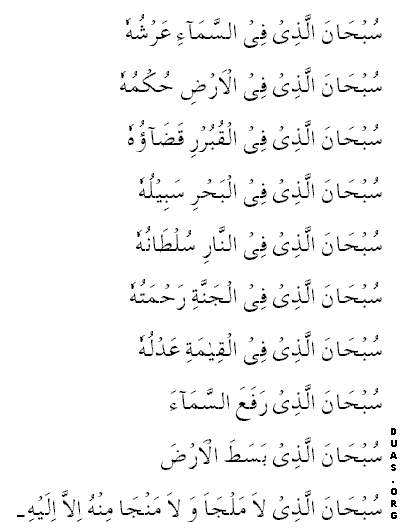 سُبْحَانَ الَّذِىْ فِىْ السَّمَآءِ عَرْشُهٗ
سُبْحَانَ الَّذِىْ فِىْ الْاَرْضِ حُكْمُهٗ
سُبْحَانَ الَّذِىْ فِىْ الْقُبُرْرِ قَضَآؤُهٗ
سُبْحَانَ الَّذِىْ فِىْ الْبَحْرِ سَبِيْلُهٗ
سُبْحَانَ الَّذِىْ فِىْ النَّارِ سُلْطَانُهٗ
سُبْحَانَ الَّذِىْ فِىْ الْجَنَّةِ رَحْمَتُهٗ
سُبْحَانَ الَّذِىْ فِىْ الْقِيٰمَةِ عَدْلُهٗ
سُبْحَانَ الَّذِىْ رَفَعَ السَّمَآءَ
سُبْحَانَ الَّذِىْ بَسَطَ الْاَرْضَ
سُبْحَانَ الَّذِىْ لاَ مَلْجَاَ وَ لاَ مَنْجَا مِنْهُ اِلاَّ اِلَيْهِ۔
DUAS.ORG